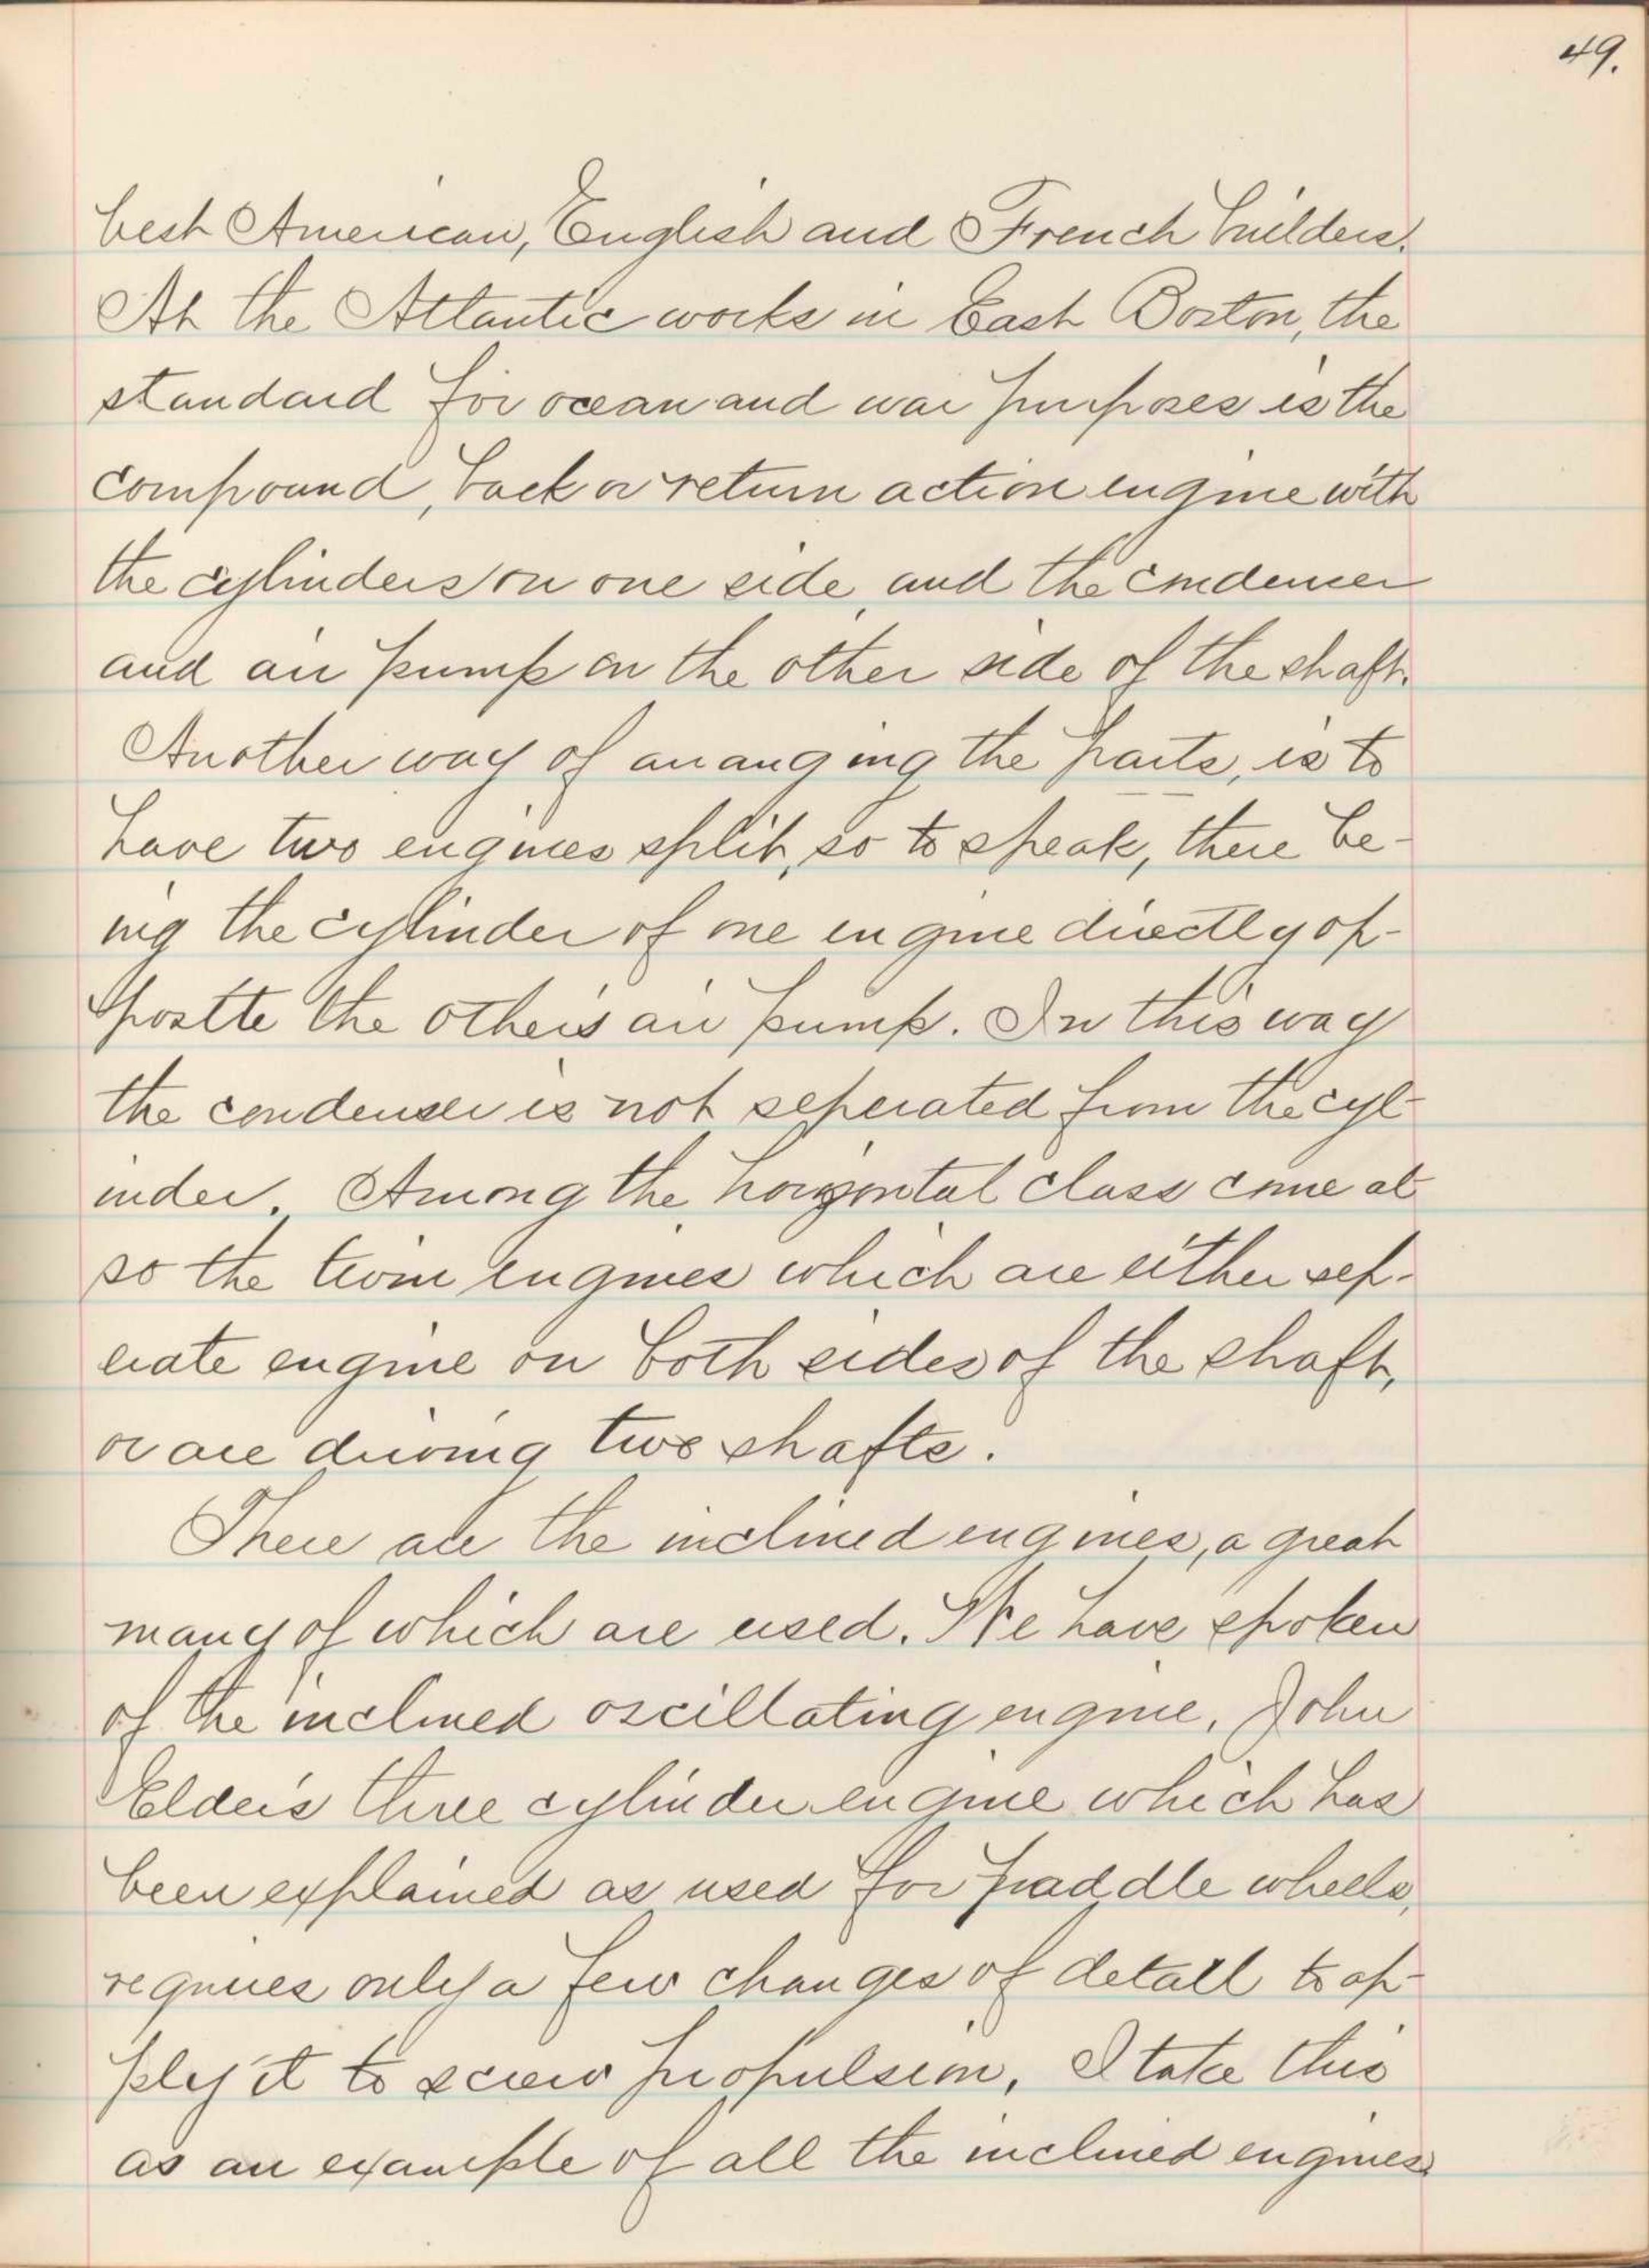 49.
best American, English and French builders.
At the Atlantic works in East Boston, the
standard for ocean and war purposes is the
compound, back or return action engine with
the cylinders on one side and the condenser
and air pump on the other side of the shaft.
Another way of arranging the parts, is to
have two engines split, so to speak, there be-
ing the cylinder of one engine directly op-
postte the other's air pump. In this way
the condenser is not seperated from the cyl-
inder. Among the horizontal class come al-
so the twin engines which are either sep-
erate engine on both sides of the shaft,
or are driving two shafts.
There are the inclined engines, a great
many of which are used. We have spoken
of the inclined oscillating engine. John
Elder's three cylinder engine which has
been explained as used for paddle wheels,
requires only a few changes of detail to ap-
ply it to screw propulsion, I take this
as an example of all the inclined engines